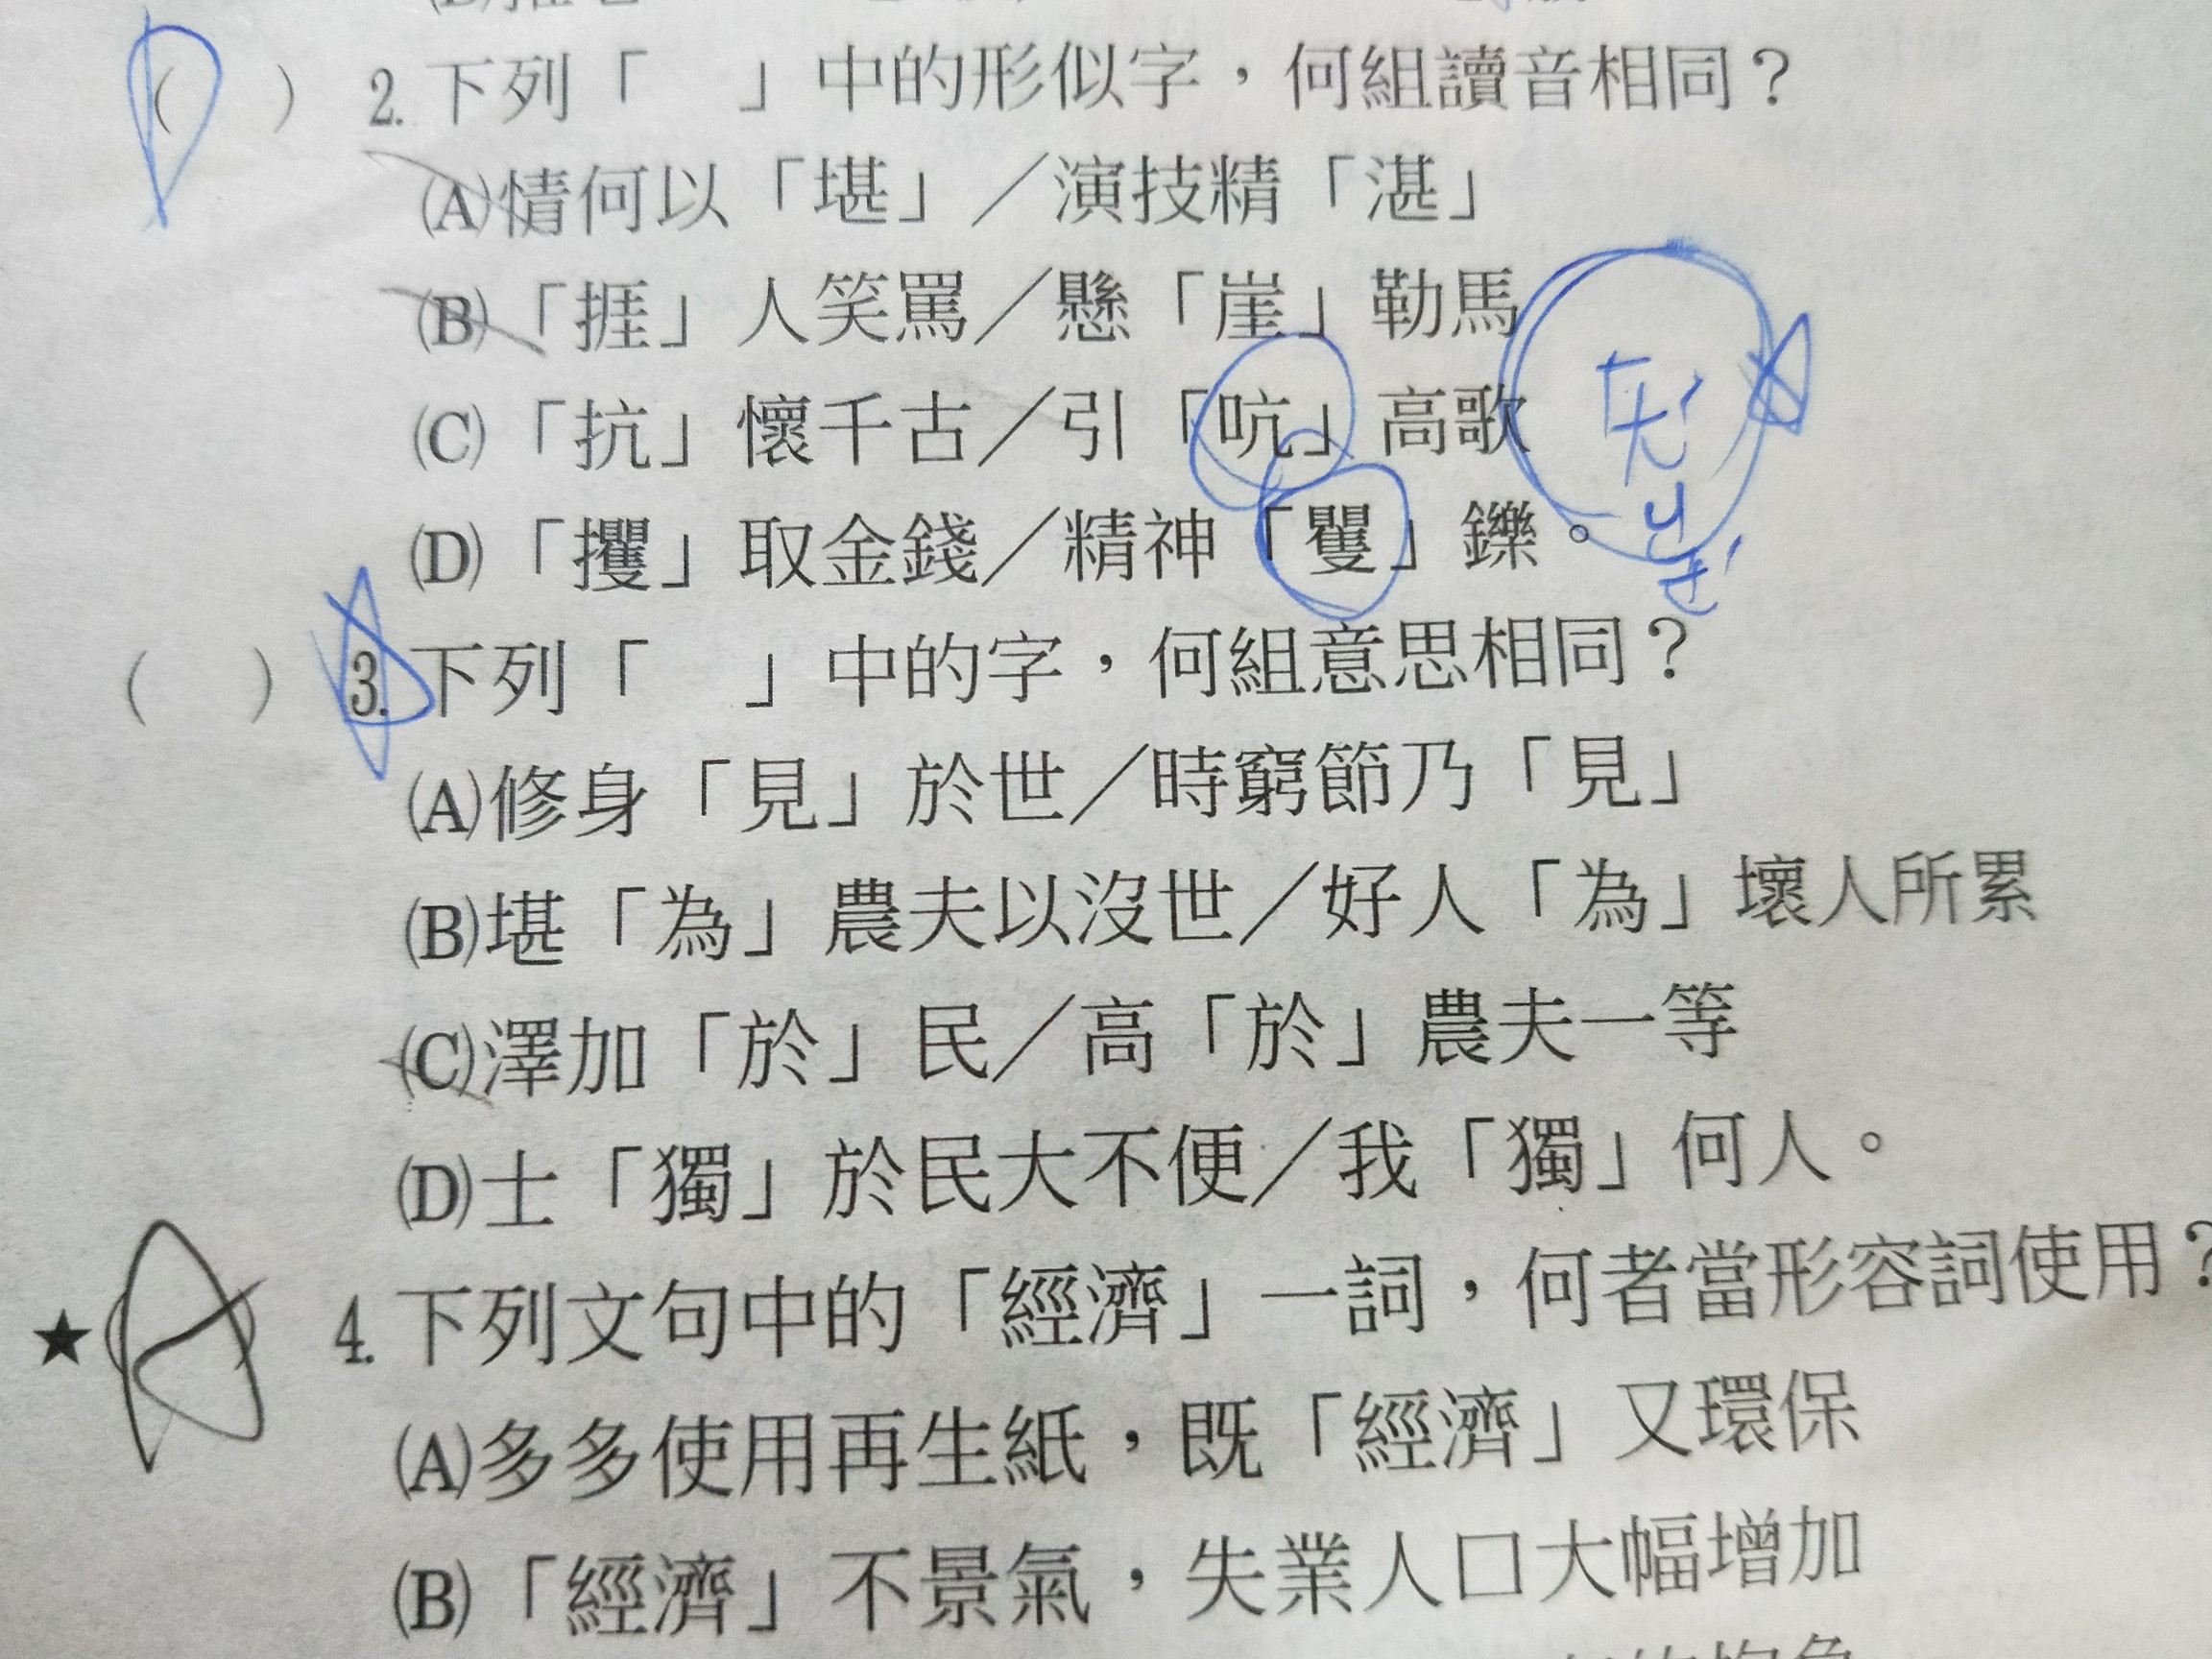 （　）2.下列「　」中的形似字，何組讀音相同？
(A)情何以「堪」／演技精「湛」
(B)「捱」人笑罵／懸「崖」勒馬
(C)「抗」懷千古／引「吭」高歌
ㄏㄤˊ
(D)「攫」取金錢／精神「矍」鑠。
ㄐㄩㄝˊ
（　）3.下列「　」中的字，何組意思相同？
(A)修身「見」於世／時窮節乃「見」
(B)堪「為」農夫以沒世／好人「為」壞人所累
(C)澤加「於」民／高「於」農夫一等
(D)士「獨」於民大不便／我「獨」何人。
★（　）4.下列文句中的「經濟」一詞，何者當形容詞使用？
(A)多多使用再生紙，既「經濟」又環保
(B)「經濟」不景氣，失業人口大幅增加